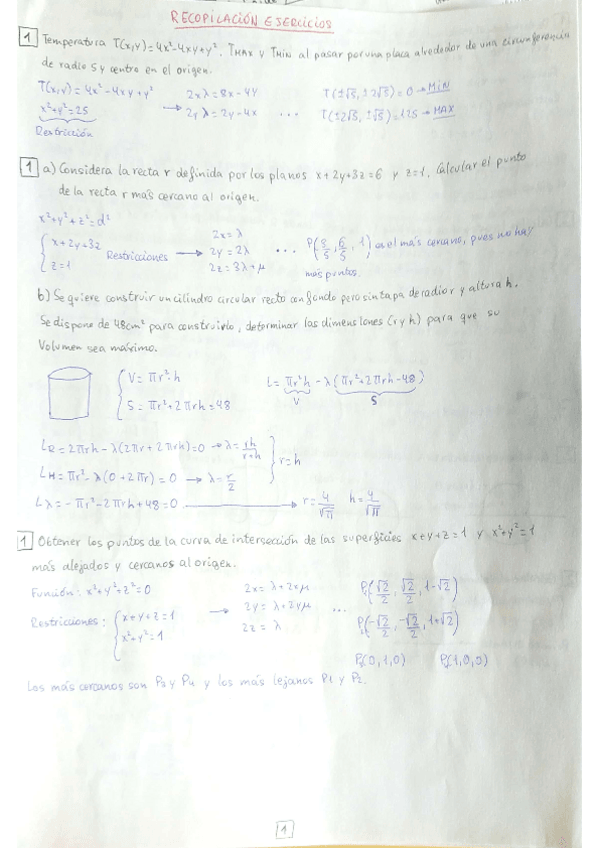 RECOPILACIÓN EJERCICIOS
1 Temperatura T(x,y)=4x²-4xy+y². TMAX y TMIN al pasar por una placa alrededor de una circunferencia
de radio 5 y centro en el origen.
T(x,y)=4x²-4xy+y² 2xλ=8x-4y T(±√5, ±2√5)=0→MIN
x²+y²=25 → 2yλ=2y-4x ... T(±2√5, ±√5)=125→MAX
Restricción
1 a) Considera la recta r definida por los planos x+2y+3z=6 y z=1. Calcular el punto
de la recta r más cercano al origen.
x²+y²+z²=d²
{x+2y+3z Restricciones → 2x=λ
z=1 2y=2λ ... P(8/5, 6/5, 1) es el más cercano, pues no hay
2z=3λ+μ más puntos.
b) Se quiere construir un cilindro circular recto con fondo pero sin tapa de radio r y altura h.
Se dispone de 48cm² para construirlo, determinar las dimensiones (r y h) para que su
Volumen sea máximo.
{V=πr²·h L=πr²h-λ(πr²+2πrh-48)
S=πr²+2πrh=48 V S
LR=2πrh-λ(2πr+2πrh)=0 →λ=rh/r+h
LH=πr²-λ(0+2πr)=0 →λ=r/2 } r=h
Lλ=-πr²-2πrh+48=0 → r=4/√π h=4/√π
1 Obtener los puntos de la curva de intersección de las superficies x+y+z=1 y x²+y²=1
más alejados y cercanos al origen.
Función: x²+y²+z²=0 2x=λ+2xμ P1(√2/2, √2/2, 1-√2)
Restricciones: {x+y+z=1 → 2y=λ+2yμ ...
x²+y²=1 2z=λ P2(-√2/2, -√2/2, 1+√2)
P3(0,1,0) P4(1,0,0)
Los más cercanos son P3 y P4 y los más lejanos P1 y P2.
1